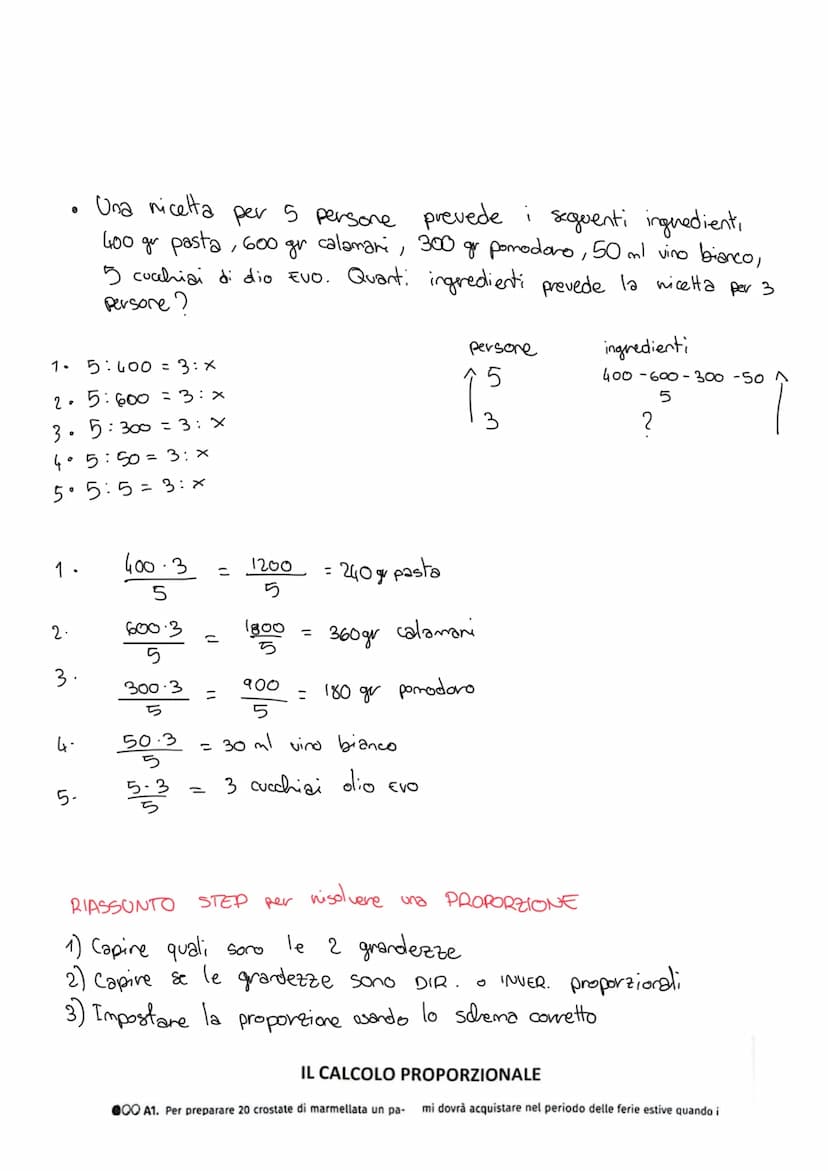 • Una ricetta per 5 persone prevede i seguenti ingredienti,
400 gr pasta, 600 gr calamari, 300 gr pomodoro, 50 ml vino bianco,
5 cucchiai di olio EVO. Quanti ingredienti prevede la ricetta per 3
persone?
persone ingredienti
5 400 - 600 - 300 - 50
5
3 ?
1. 5 : 400 = 3 : x
2. 5 : 600 = 3 : x
3. 5 : 300 = 3 : x
4. 5 : 50 = 3 : x
5. 5 : 5 = 3 : x
1. 400 · 3 / 5 = 1200 / 5 = 240 gr pasta
2. 600 · 3 / 5 = 1800 / 5 = 360 gr calamari
3. 300 · 3 / 5 = 900 / 5 = 180 gr pomodoro
4. 50 · 3 / 5 = 30 ml vino bianco
5. 5 · 3 / 5 = 3 cucchiai olio EVO
RIASSUNTO STEP per risolvere una PROPORZIONE
1) Capire quali sono le 2 grandezze
2) Capire se le grandezze sono DIR. o INVER. proporzionali
3) Impostare la proporzione usando lo schema corretto
IL CALCOLO PROPORZIONALE
A1. Per preparare 20 crostate di marmellata un pa-
mi dovrà acquistare nel periodo delle ferie estive quando i